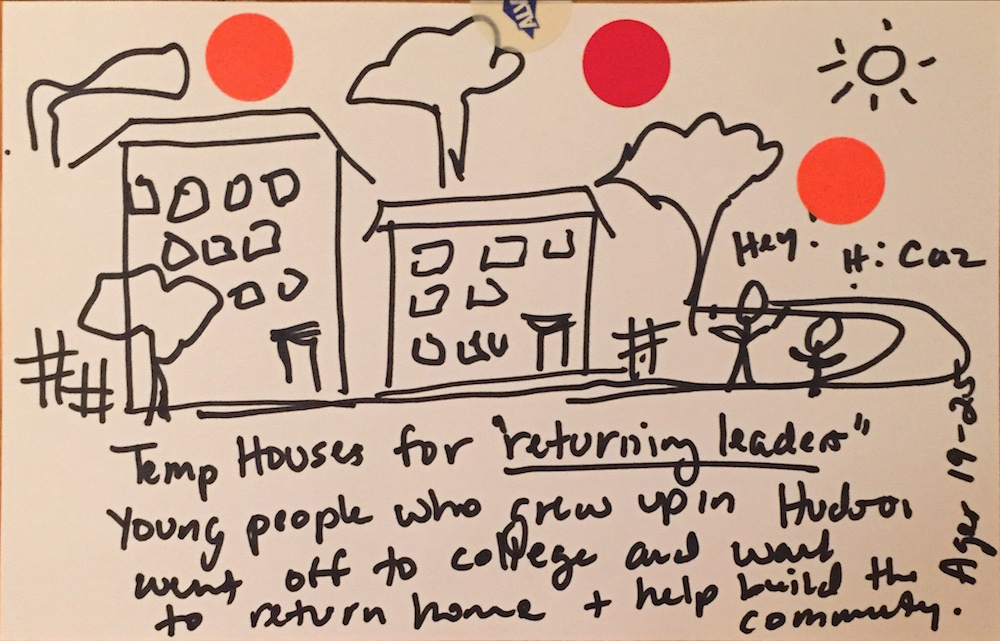 Hey!
Hi Caz
Temp Houses for "returning leaders"
Young people who grew up in Hudson
went off to college and want
to return home + help build the
community.
Ages 19-25